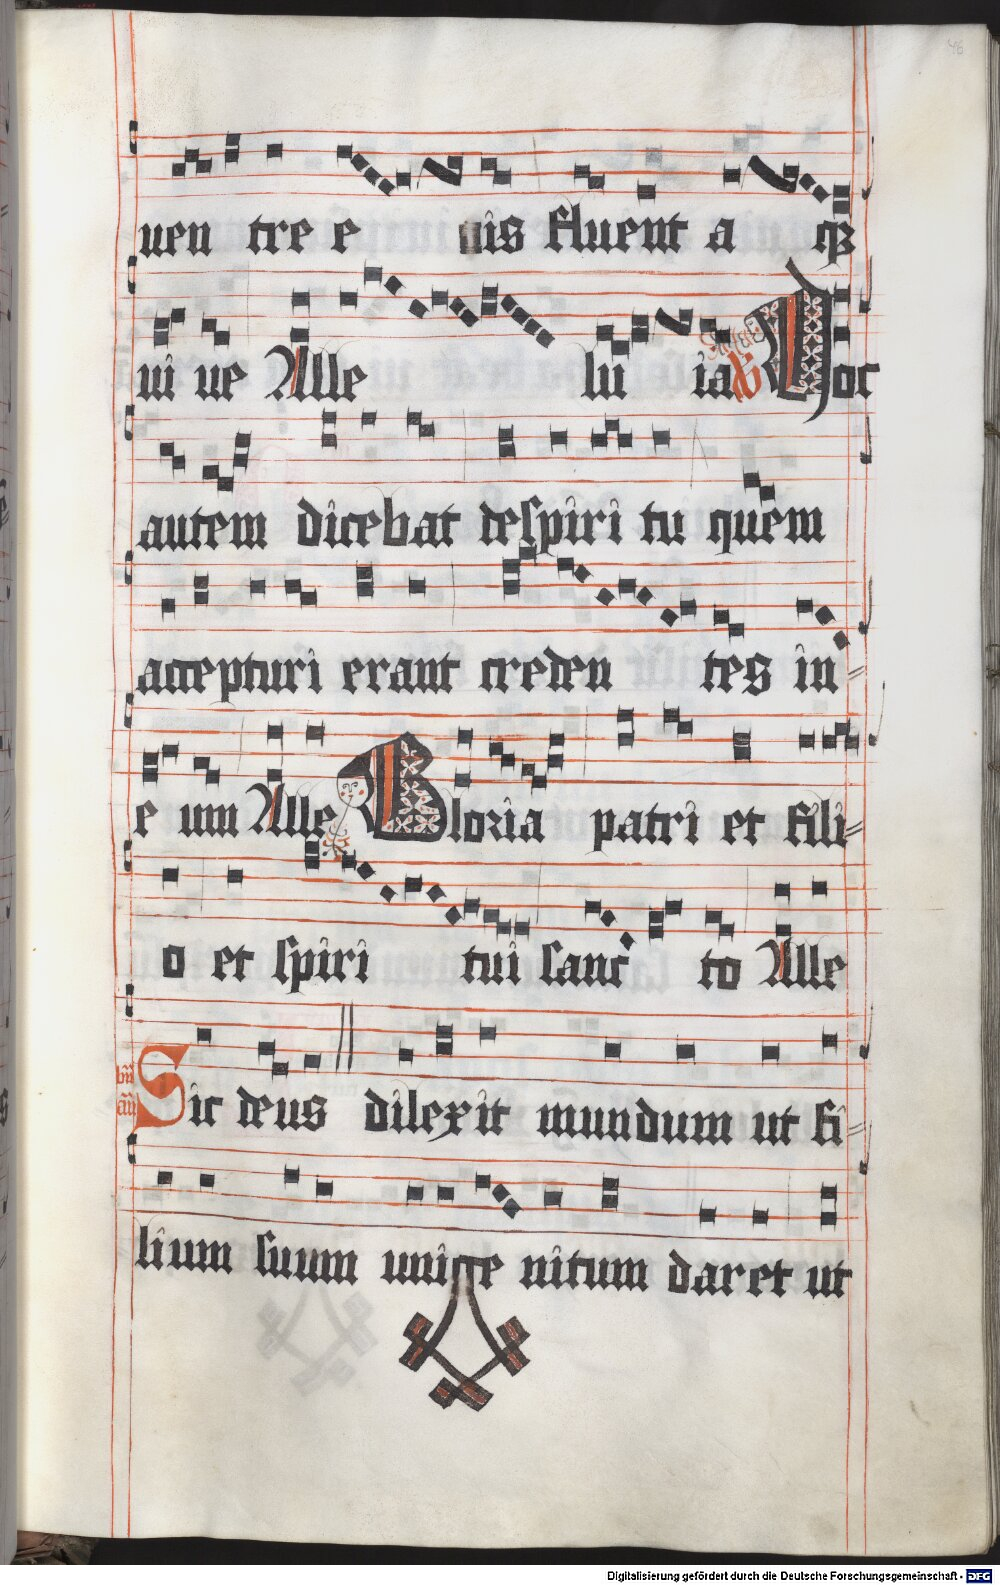 46
uen tre e ius fluent a q̄
ui ue Alle lu ia ℣ Hoc
autem dicebat de spiri tu quem
accepturi erant creden tes in
e um Alle Gloria patri et fili
o et spiri tui sanc to Alle
Sic deus dilexit mundum ut fi
lium suum unige nitum daret ut
Digitalisierung gefördert durch die Deutsche Forschungsgemeinschaft - DFG